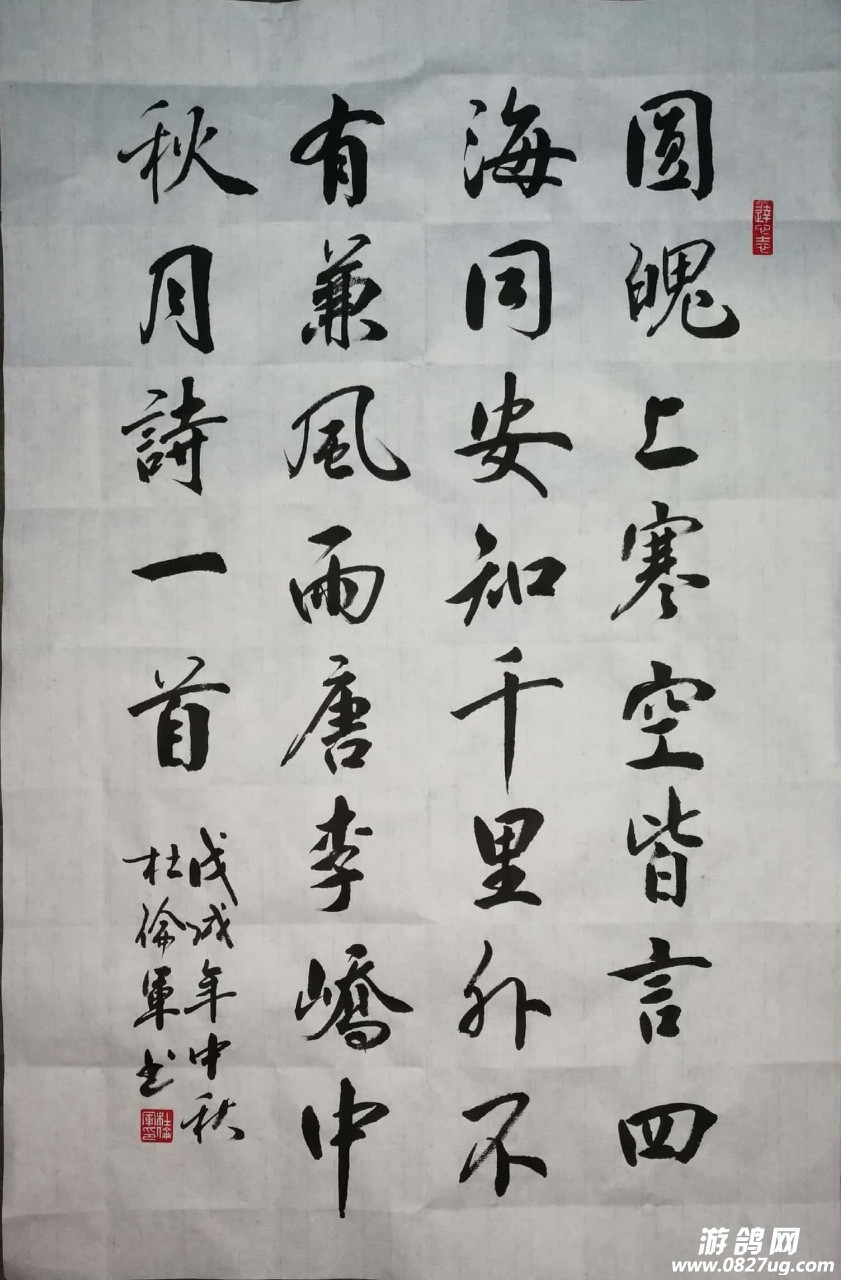 圆魄上寒空皆言四
海同安知千里外不
有兼風雨唐李嶠中
秋月詩一首
戊戌年中秋
杜倫軍书
游鸽网
www.0827ug.com